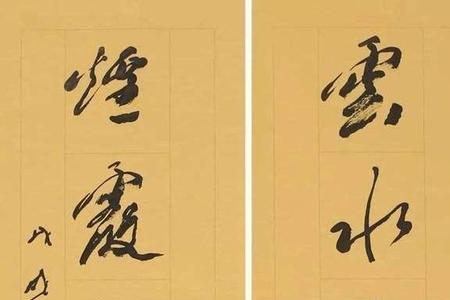 雲水
煙霞
戊戌